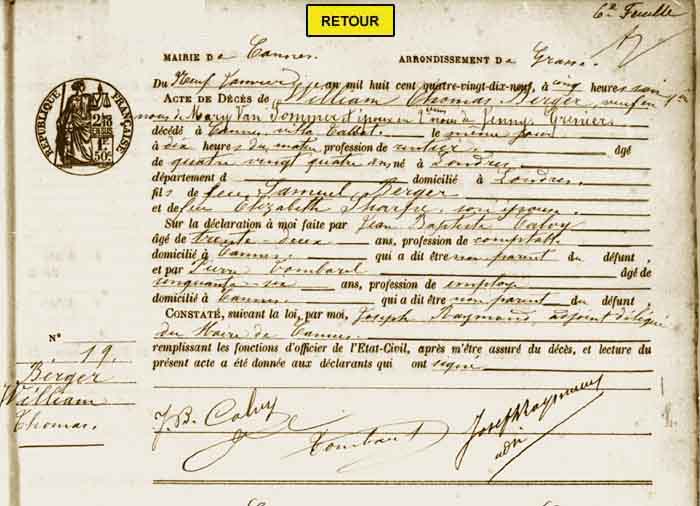 RETOUR
6e Feuille
MAIRIE De Cannes. ARRONDISSEMENT De Grasse.
Du Neuf Janvier l'an mil huit cent quatre-vingt-dix-neuf, à cinq heures soir
ACTE DE DÉCÈS de William Thomas Berger, veuf en 1ères
noces de Mary Van Sommer époux en 2e noces de Jenny Grenier,
décédé à Cannes villa Talbot. le même jour
à six heures du matin profession de rentier. âgé
de quatre vingt quatre an, né à Londres
département d domicilié à Londres.
fils de feu Samuel Berger
et de feu Elizabeth Sharpe, son épouse.
Sur la déclaration à moi faite par Jean Baptiste Calvy
âgé de trente-deux ans, profession de comptable
domicilié à Cannes qui a dit être non parent du défunt,
et par Pierre Tombarel âgé de
cinquante-six ans, profession de employé
domicilié à Cannes qui a dit être non parent du défunt,
CONSTATÉ, suivant la loi, par moi, Joseph Raymond, adjoint délégué
du Maire de Cannes.
remplissant les fonctions d'officier de l'Etat-Civil, après m'être assuré du décès, et lecture du
présent acte a été donnée aux déclarants qui ont signé
RÉPUBLIQUE FRANÇAISE
N°
19.
Berger
William
Thomas.
J. B. Calvy
Joseph Raymond
adj